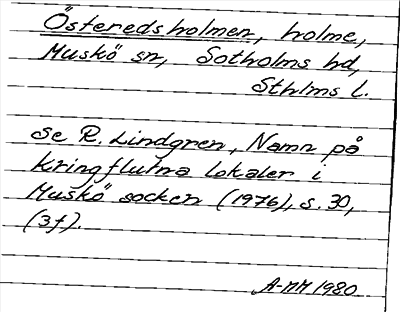 Österedsholmen, holme,
Muskö sn, Sotholms hd,
Sthlms l.
Se R. Lindgren, Namn på
kringflutna lokaler i
Muskö socken (1976), s. 30,
(3f).
A-MM 1980